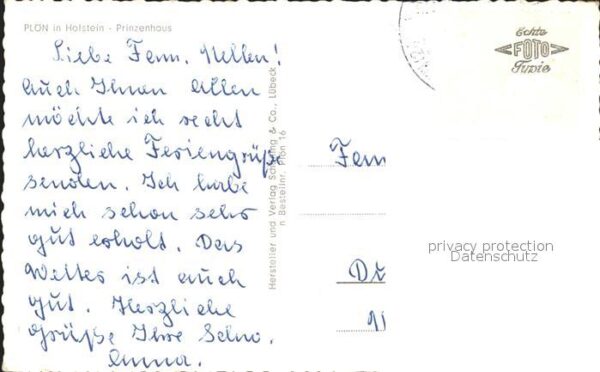 PLÖN in Holstein - Prinzenhaus
Liebe Fam. Nellen!
Auch Ihnen Allen
möchte ich recht
herzliche Feriengrüße
senden. Ich habe
mich schon sehr
gut erholt. Das
Wetter ist auch
gut. Herzliche
Grüße Ihre Schw.
Anna.
Hersteller und Verlag & Co., Lübeck
Bestellnr. Plön 16
Echte
FOTO
Typie
Fam
privacy protection
Datenschutz